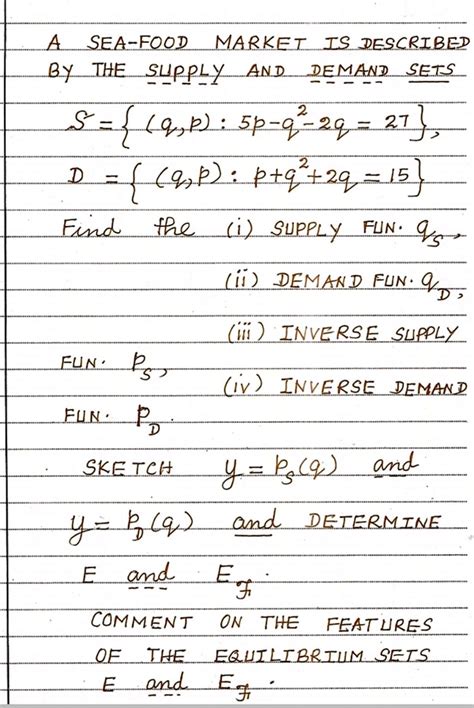 A SEA-FOOD MARKET IS DESCRIBED
BY THE SUPPLY AND DEMAND SETS
S = { (q,p) : 5p-q²-2q = 27 },
D = { (q,p) : p+q²+2q = 15 }
Find the (i) SUPPLY FUN. q_S,
(ii) DEMAND FUN. q_D,
(iii) INVERSE SUPPLY
FUN. p_S,
(iv) INVERSE DEMAND
FUN. p_D.
SKETCH y = p_S(q) and
y = p_D(q) and DETERMINE
E and E_F.
COMMENT ON THE FEATURES
OF THE EQUILIBRIUM SETS
E and E_F.